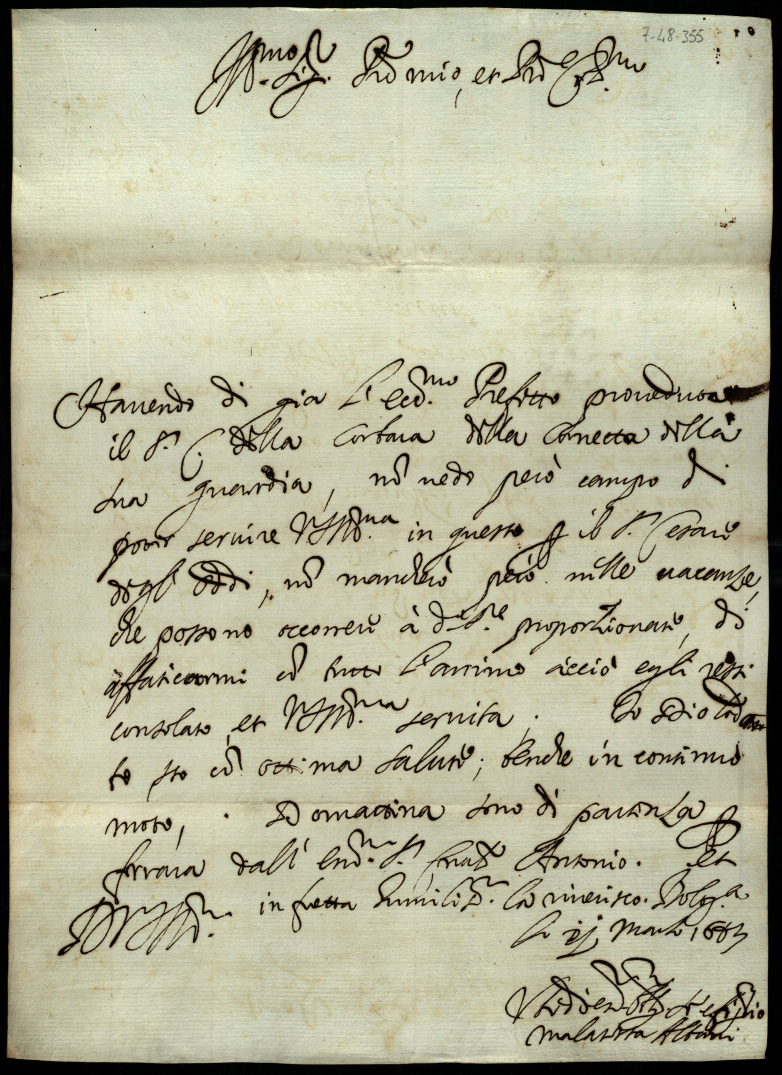 7-48-355
Ill.mo Sig.r P.rõn mio, et P.rõn
Havendo di gia l' ecc.mo Prefetto proueduto
il S.r C. della Corbara della Cornetta della
sua guardia, nõ uedo però campo di
poter seruire V.S.Ill.ma in questo p il S.r Cesare
degl' Oddi, nõ mancherò però nelle uacanze,
che possono occorrere à d.o S.re proportionate, di
affaticarmi cõ tutto l'animo acciò egli resti
consolato, et V.S.Ill.ma seruita. Io Dio lod
to sto cõ ottima salute; benche in continuo
moto, Domattina sono di partenza p
ferrara dall' em.mo S.r Card. Antonio. Et
à V.S.Ill.ma in fretta humiliss.te la riuerisco. Bolog.a
li Marzo
Malatesta Albani